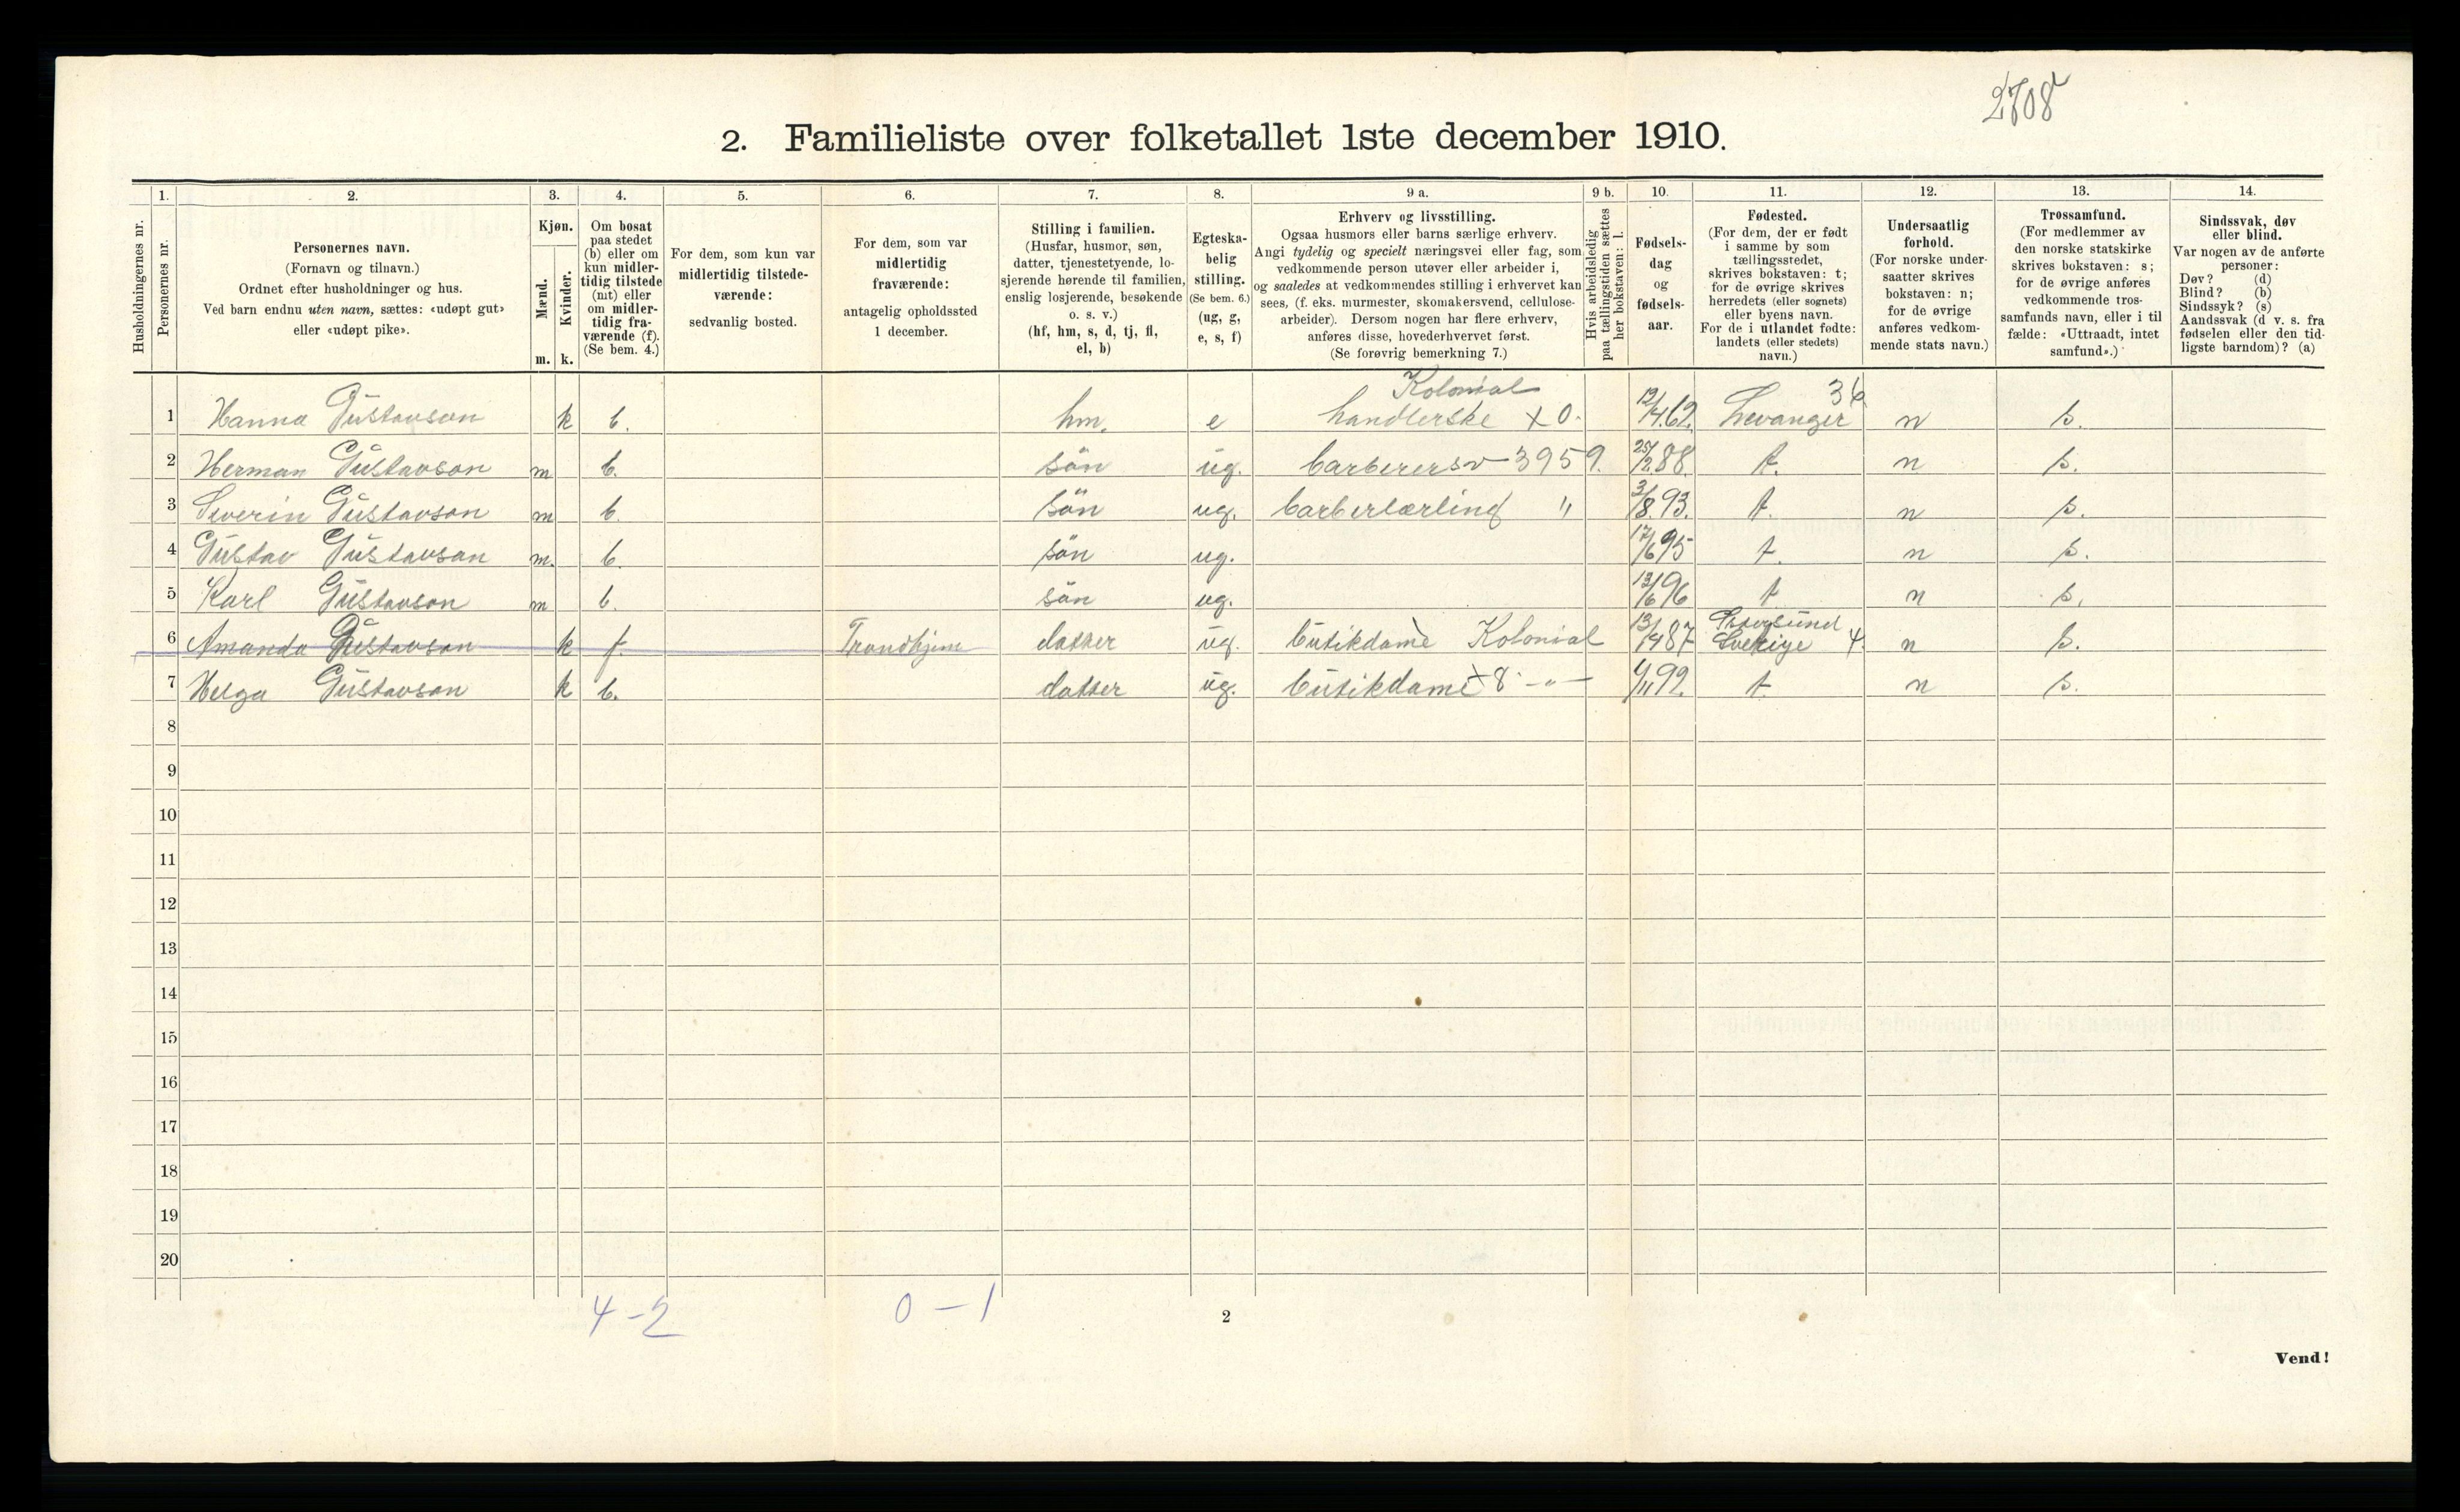 2708
2. Familieliste over folketallet 1ste december 1910.
Husholdningernes nr.
1. Personernes nr.
2. Personernes navn.
(Fornavn og tilnavn.)
Ordnet efter husholdninger og hus.
Ved barn endnu uten navn, sættes: «udøpt gut»
eller «udøpt pike».
3. Kjøn.
Mænd. m.
Kvinder. k.
4. Om bosat
paa stedet
(b) eller om
kun midler-
tidig tilstede
(mt) eller
om midler-
tidig fra-
værende (f).
(Se bem. 4.)
5. For dem, som kun var
midlertidig tilstede-
værende:
sedvanlig bosted.
6. For dem, som var
midlertidig
fraværende:
antagelig opholdssted
1 december.
7. Stilling i familien.
(Husfar, husmor, søn,
datter, tjenestetyende, lo-
sjerende hørende til familien,
enslig losjerende, besøkende
o. s. v.)
(hf, hm, s, d, tj, fl,
el, b)
8. Egteska-
belig
stilling.
(Se bem. 6.)
(ug, g,
e, s, f)
9 a. Erhverv og livsstilling.
Ogsaa husmors eller barns særlige erhverv.
Angi tydelig og specielt næringsvei eller fag, som
vedkommende person utøver eller arbeider i,
og saaledes at vedkommendes stilling i erhvervet kan
sees, (f. eks. murmester, skomakersvend, cellulose-
arbeider). Dersom nogen har flere erhverv,
anføres disse, hovederhvervet først.
(Se forøvrig bemerkning 7.)
9 b. Hvis arbeidsledig
paa tællingstiden sættes
her bokstaven: l.
10. Fødsels-
dag
og
fødsels-
aar.
11. Fødested.
(For dem, der er født
i samme by som
tællingsstedet,
skrives bokstaven: t;
for de øvrige skrives
herredets (eller sognets)
eller byens navn.
For de i utlandet fødte:
landets (eller stedets)
navn.)
12. Undersaatlig
forhold.
(For norske under-
saatter skrives
bokstaven: n;
for de øvrige
anføres vedkom-
mende stats navn.)
13. Trossamfund.
(For medlemmer av
den norske statskirke
skrives bokstaven: s;
for de øvrige anføres
vedkommende tros-
samfunds navn, eller i til
fælde: «Uttraadt, intet
samfund».)
14. Sindssvak, døv
eller blind.
Var nogen av de anførte
personer:
Døv? (d)
Blind? (b)
Sindssyk? (s)
Aandssvak (d v. s. fra
fødselen eller den tid-
ligste barndom)? (a)
Kolonial 36
1 Hanna Gustavson k b. hm. e handlerske x 0. 12/4 62. Levanger n s.
2 Herman Gustavson m b. sön ug. barberersv 3959. 25/2 88. t. n s.
3 Severin Gustavson m b. sön ug. barberlærling " 3/8 93. t. n s.
4 Gustav Gustavson m. b. sön ug. 17/6 95 t. n s.
5 Karl Gustavson m b. sön ug. 13/6 96 t n s.
Östersund
6 Amanda Gustavson k f. Trondhjem datter ug. butikdame Kolonial 13/4 87 Sverige 4. n s.
7 Helga Gustavson k b. datter ug. butikdame x 8 -"- 4/11 92. t. n s.
8
9
10
11
12
13
14
15
16
17
18
19
20
4 - 2 0 - 1
2
Vend!